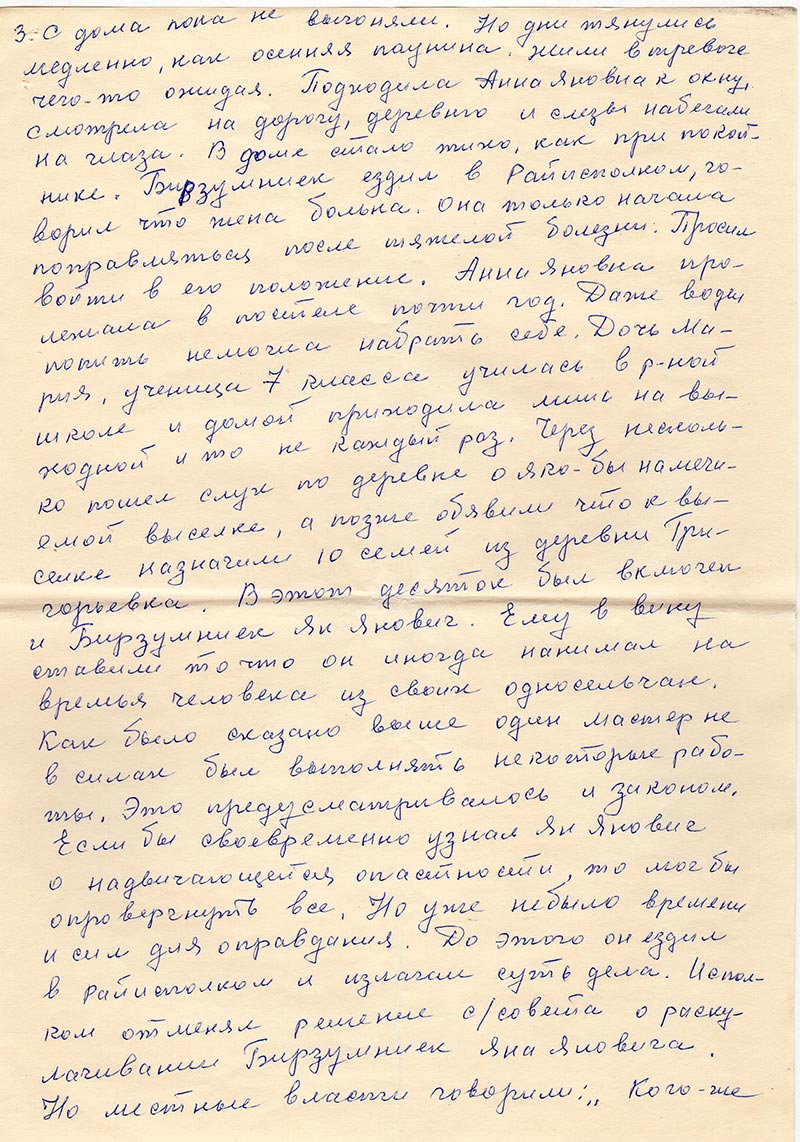 3. С дома пока не выгоняли. Но дни тянулись
медленно, как осенняя паутина. Жили в тревоге
чего-то ожидая. Подходила Анна Яновна к окну,
смотрела на дорогу, деревню и слезы набегали
на глаза. В доме стало тихо, как при покой-
нике. Бирзумниек ездил в Райисполком, го-
ворил что жена больна. Она только начала
поправляться после тяжелой болезни. Просил
войти в его положение. Анна Яновна про-
лежала в постеле почти год. Даже воды
попить немогла набрать себе. Дочь Ма-
рия, ученица 7 класса училась в р-ной
школе и домой приходила лишь на вы-
ходной и то не каждый раз. Через несколь-
ко пошел слух по деревне о яко-бы намеча-
емой выселке, а позже обявили что к вы-
селке назначили 10 семей из деревни Гри-
горьевка. В этот десяток был включен
и Бирзумниек Ян Янович. Ему в вину
ставили то что он иногда нанимал на
времья человека из своих односельчан.
Как было сказано выше один мастер не
в силах был выполнять некоторые рабо-
ты. Это предусматривалось и законом.
Если бы своевременно узнал Ян Янович
о надвигающейся опастности, то мог бы
опровергнуть все. Но уже небыло времени
и сил для оправдания. До этого он ездил
в Райисполком и излагал суть дела. Испол-
ком отменял решение с/совета о раску-
лачивании Бирзумниек Яна Яновича.
Но местные власти говорили: „Кого-же